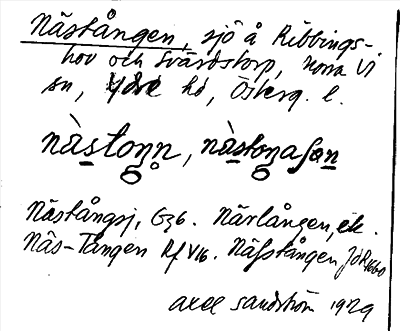 Nästången, sjö å Ribbings-
hov och Svärdstorp, norra Vi
sn, Ydre hd, Österg. l.
nàstoŋn, nàstoŋasøn
Nästångsj, G36. Närlången, ek.
Näs-Tången Rf V16. Näfstången JdR1660
Axel Sandström 1929